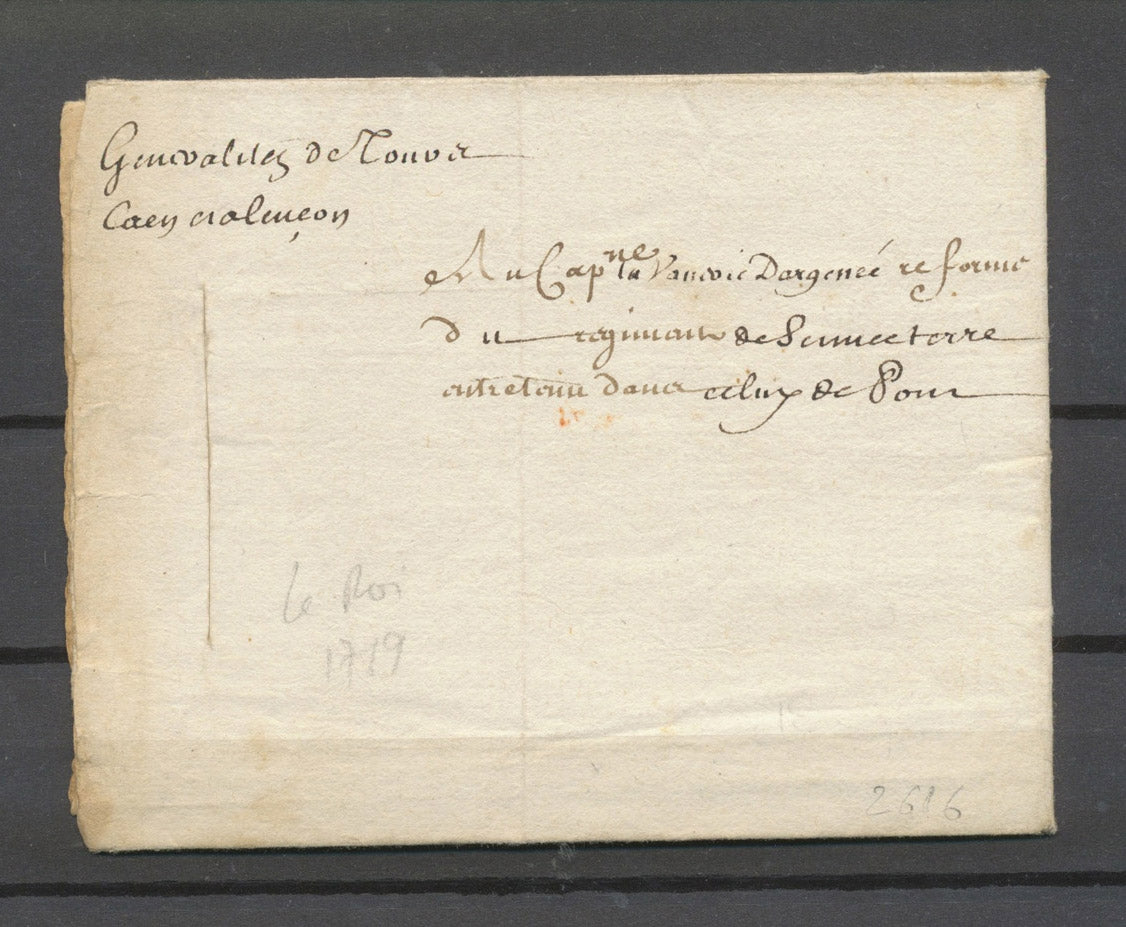 Generalitez de Rouen
Caen et alençon
Au Cap.ne la Dargencé reformé
du regiment de Senneterre
entretenu dans celuy de
Le Roi
1719
2616